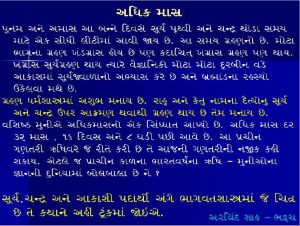 અધિક માસ
પૂનમ અને અમાસ આ બન્ને દિવસે સૂર્ય પૃથ્વી અને ચન્દ્ર થોડા સમય
માટે એક સીધી લીટીમાં આવી જાય છે. આ સમય ગ્રહણનો છે. મોટા
ભાગના ગ્રહણ ખંડગ્રાસ હોય છે પણ કદાચિત ખગ્રાસ ગ્રહણ પણ થાય.
ખગ્રાસ સૂર્યગ્રહણ થાય ત્યારે વૈજ્ઞાનિકો મોટા મોટા દૂરબીન વડે
આકાશમાં સૂર્યજ્વાળાનો અભ્યાસ કરે છે અને બ્રહ્માંડના રહસ્યો
ઉકેલવા મથે છે.
ગ્રહણ ધર્મશાસ્ત્રમાં અશુભ મનાય છે. રાહુ અને કેતુ નામના દૈત્યોનુ સૂર્ય
અને ચન્દ્ર ઉપર આક્રમણ થવાથી ગ્રહણ થાય છે તેમ મનાય છે.
વસિષ્ઠ મુનીએ અધિકમાસનો એક સિધ્ધાંત આપ્યો છે. અધિક માસ દર
૩૨ માસ , ૧૬ દિવસ અને ૮ ઘડી પછી આવે છે. આ પ્રાચીન
ગણતરી ઋષિવરે જે રીતે કરી છે તે આજની ગણતરીની નજીક કહી
શકાય. એટલે જ પ્રાચીન કાળના ભારતવર્ષના ઋષિ - મુનીઓના
જ્ઞાનની દુનિયામાં બોલબાલા છે ને !
સૂર્ય,ચન્દ્ર અને આકાશી પદાર્થો અંગે ભાગવતશાસ્ત્રમાં જે ચિત્ર
છે તે કથાને અહીં ટૂંકમાં જોઇએ.
અરવિંદ શાહ - ભરૂચ